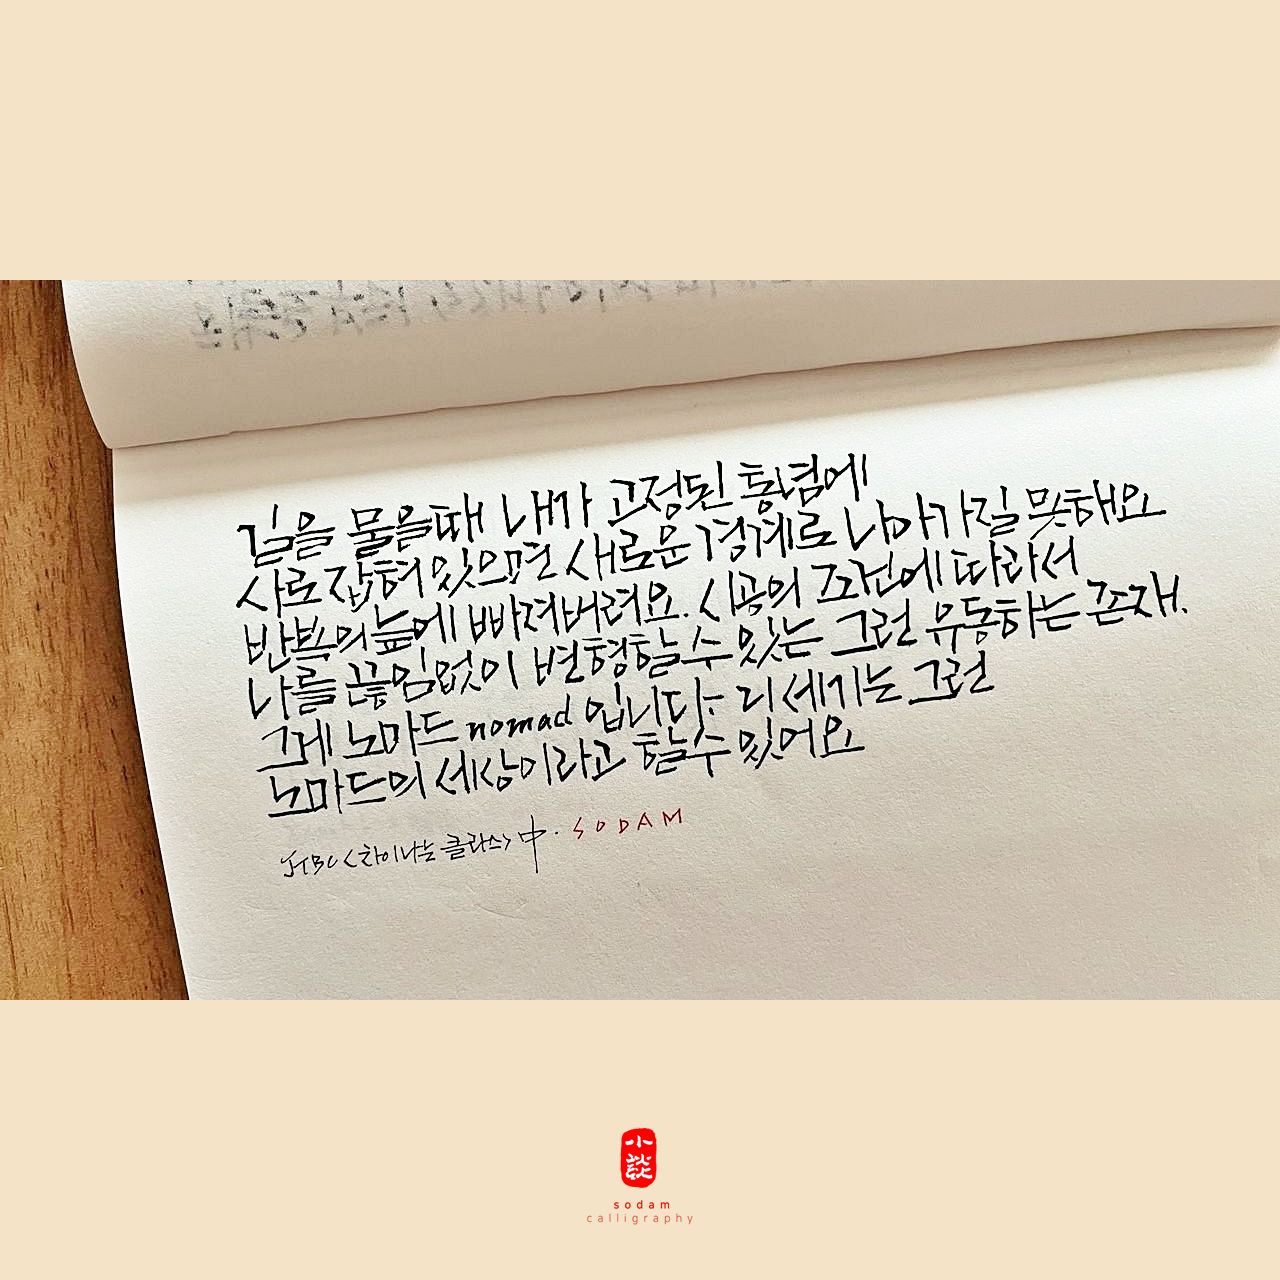 길을 물을때 내가 고정된 통념에
사로잡혀있으면 새로운 경계로 나아가질 못해요
반복의 늪에 빠져버려요. 시공의 조건에 따라서
나를 끊임없이 변형할수있는 그런 유동하는 존재.
그게 노마드 nomad 입니다. 디세기는 그런
노마드의 세상이라고 할수있어요
JTBC <차이나는 클라스> 中. SODAM
小談
sodam
calligraphy